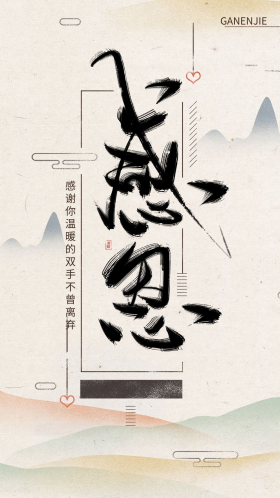 GANENJIE
感恩
感谢你温暖的双手不曾离弃